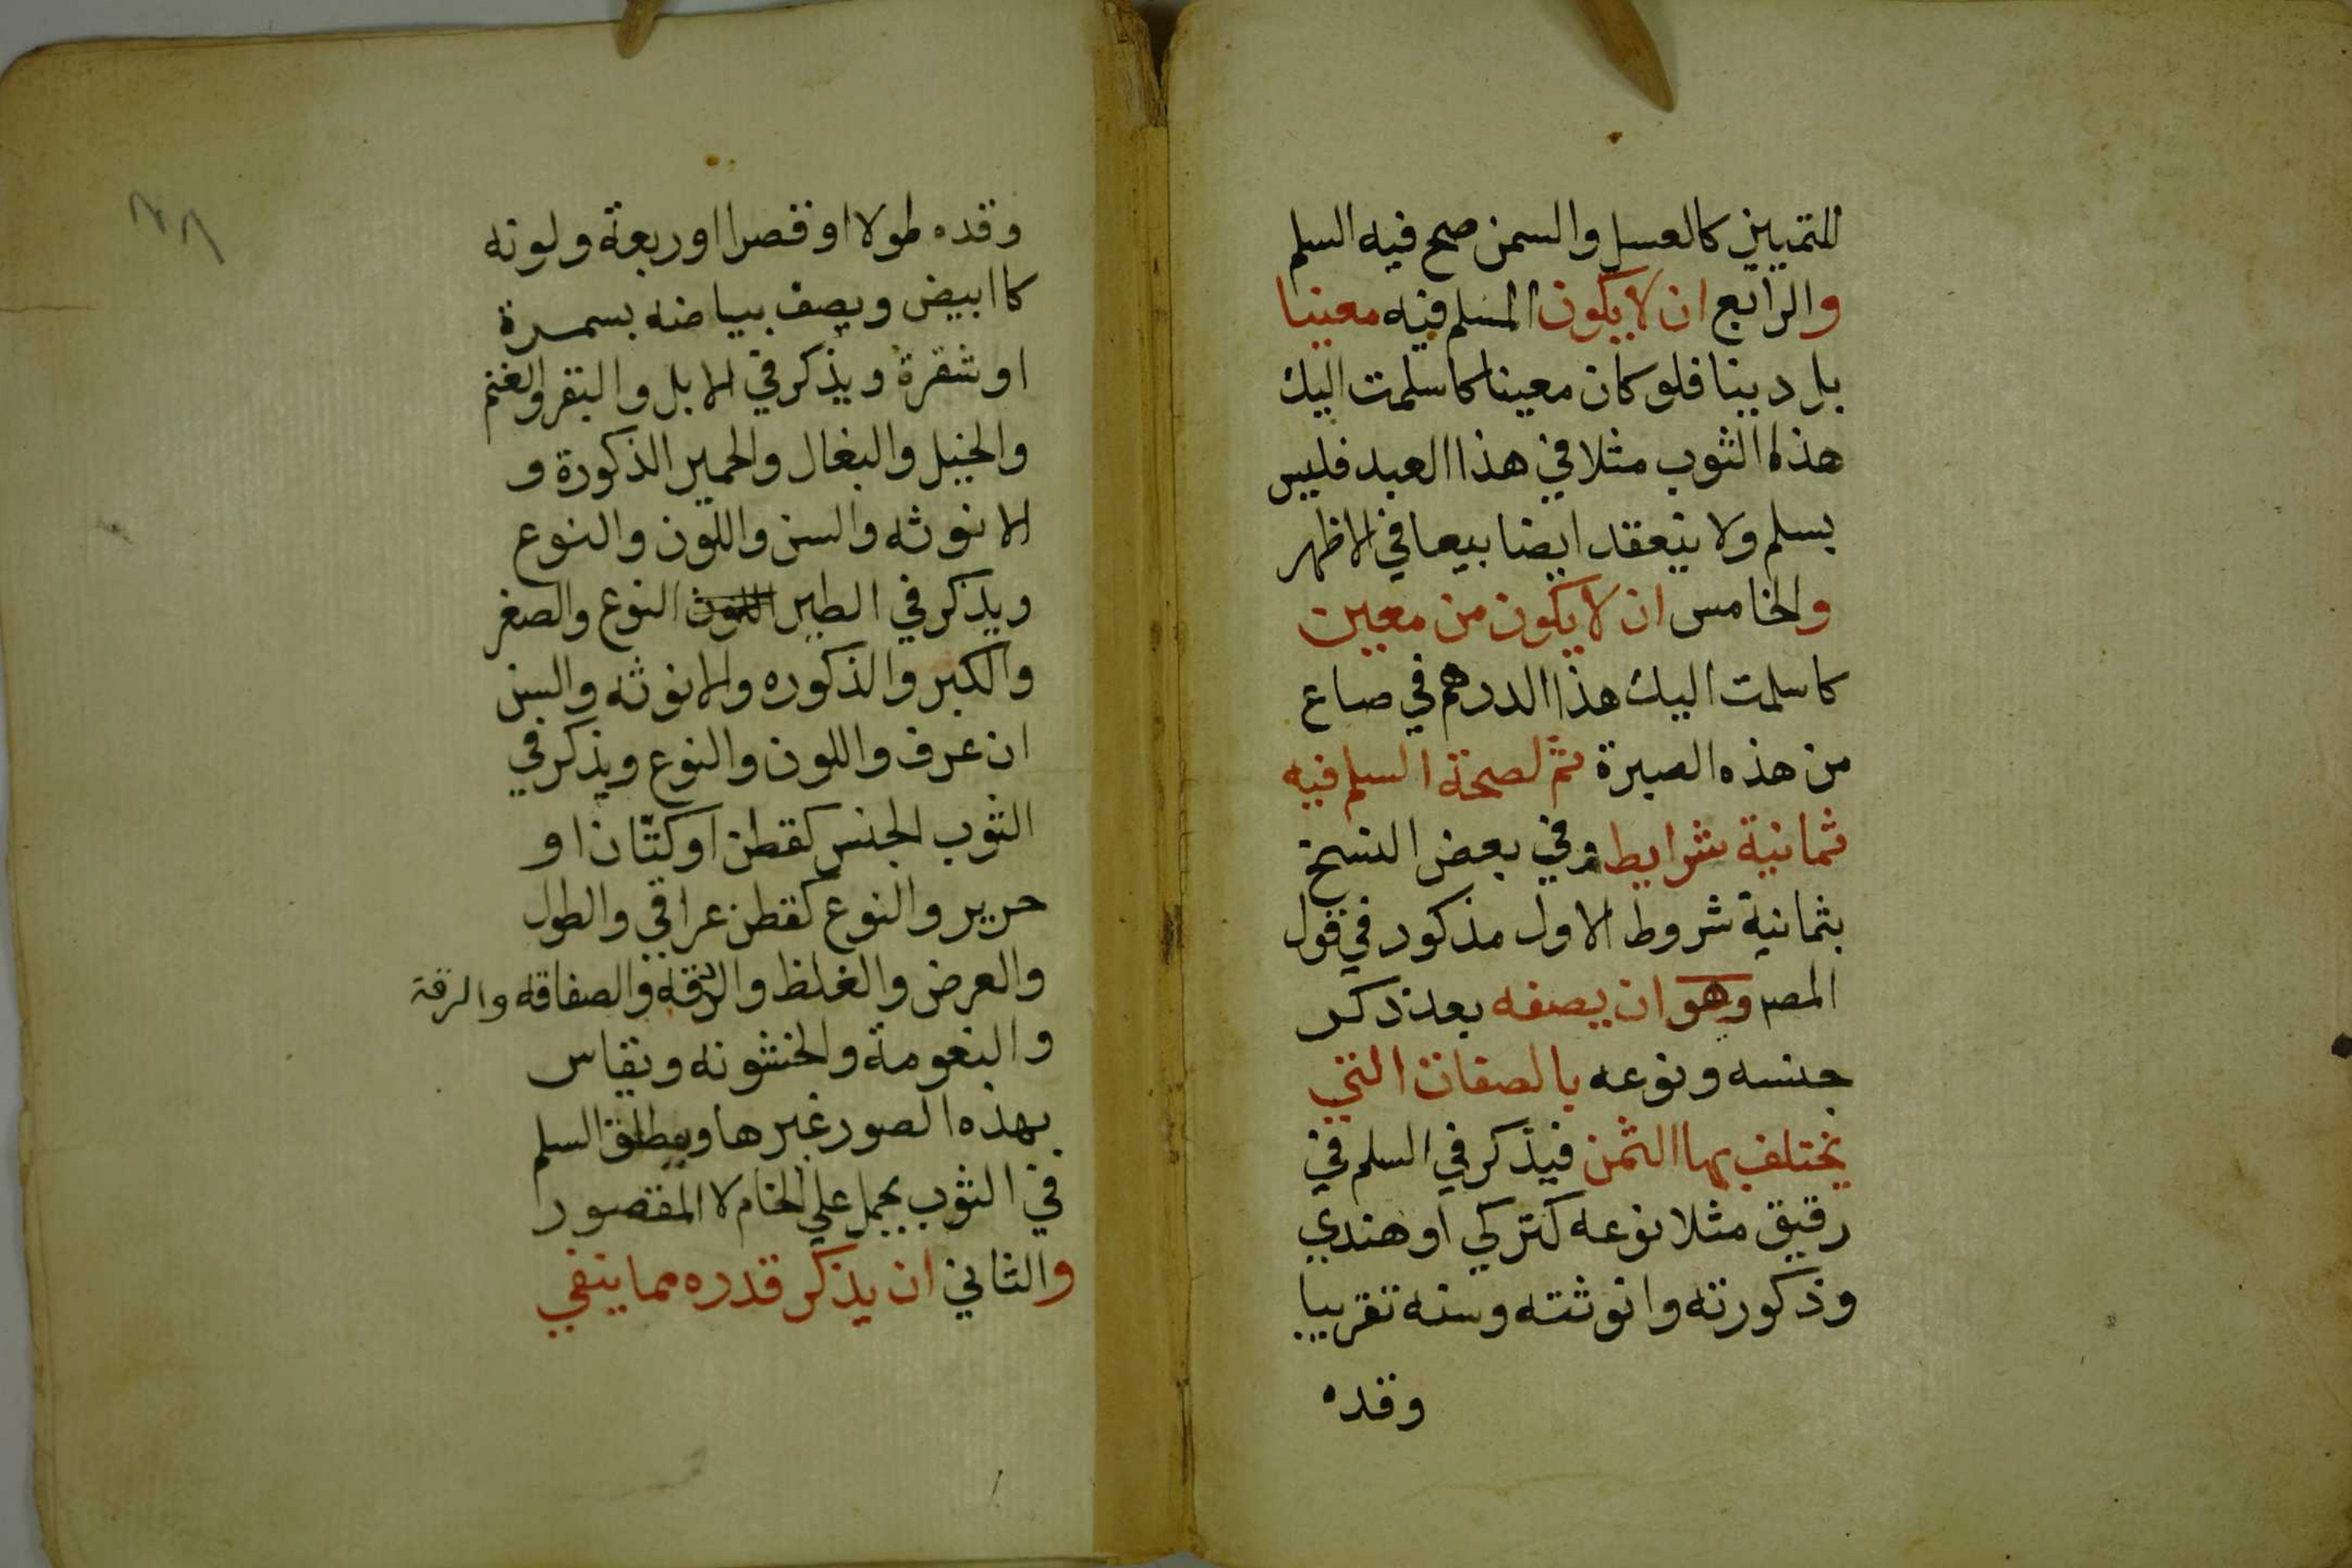 للتمييز كالعسل والسمن صح فيه السلم
والرابع ان لا يكون المسلم فيه معينا
بل دينا فلو كان معينا كاسلمت اليك
هذه الثوب مثلا في هذا العبد فليس
بسلم ولا ينعقد ايضا بيعا في الاظهر
والخامس ان لا يكون من معين
كاسلمت اليك هذا الدرهم في صاع
من هذه الصبرة ثم لصحة السلم فيه
ثمانية شرايط وفي بعض النسخ
بثمانية شروط الاول مذكور في قول
المصـ وهو ان يصفه بعد ذكر
جنسه ونوعه بالصفات التي
يختلف بها الثمن فيذكر في السلم في
رقيق مثلا نوعه كتركي او هندي
وذكورته وانوثته وسنه تقريبا
وقده
٢٨
وقده طولا او قصرا او ربعة ولونه
كاابيض ويصف بياضه بسمرة
او شقرة ويذكر في الابل والبقر والغنم
والخيل والبغال والحمير الذكورة و
الانوثه والسن واللون والنوع
ويذكر في الطير اللون النوع والصغر
والكبر والذكوره والانوثه والسن
ان عرف واللون والنوع ويذكر في
الثوب الجنس كقطن او كتّان او
حرير والنوع كقطن عراقي والطول
والعرض والغلظ والدقه والصفاقه والرقة
والنعومة والخشونه ويقاس
بهذه الصور غيرها ومطلق السلم
في الثوب يحمل علي الخام لا المقصور
والثاني ان يذكر قدره مما ينفي